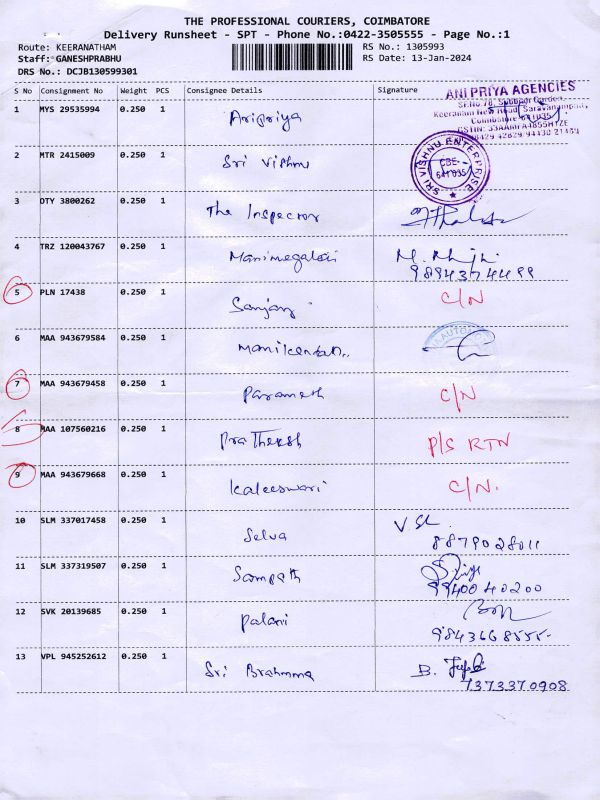 THE PROFESSIONAL COURIERS, COIMBATORE
Delivery Runsheet - SPT - Phone No.:0422-3505555 - Page No.:1
Route: KEERANATHAM RS No.: 1305993
Staff: GANESHPRABHU RS Date: 13-Jan-2024
DRS No.: DCJB130599301
S No Consignment No Weight PCS Consignee Details Signature
ANI PRIYA AGENCIES
1 MYS 29535994 0.250 1 Anipriya
2 MTR 2415009 0.250 1 Sri Vishnu
SRI VISHNU ENTERPRISE
CBE-
641035
3 DTY 3800262 0.250 1 The Inspector
4 TRZ 120043767 0.250 1 Manimegalai
9894374499
5 PLN 17438 0.250 1 Sanjay C/N
6 MAA 943679584 0.250 1 Manikandan
7 MAA 943679458 0.250 1 Paramesh C/N
8 MAA 107560216 0.250 1 Pratheesh P/S RTN
9 MAA 943679668 0.250 1 Kaleeswari C/N.
10 SLM 337017458 0.250 1 Selva
8879028011
11 SLM 337319507 0.250 1 Sampath
9940040200
12 SVK 20139685 0.250 1 Palani
9843668555
13 VPL 945252612 0.250 1 Sri Brahmma
7373370908